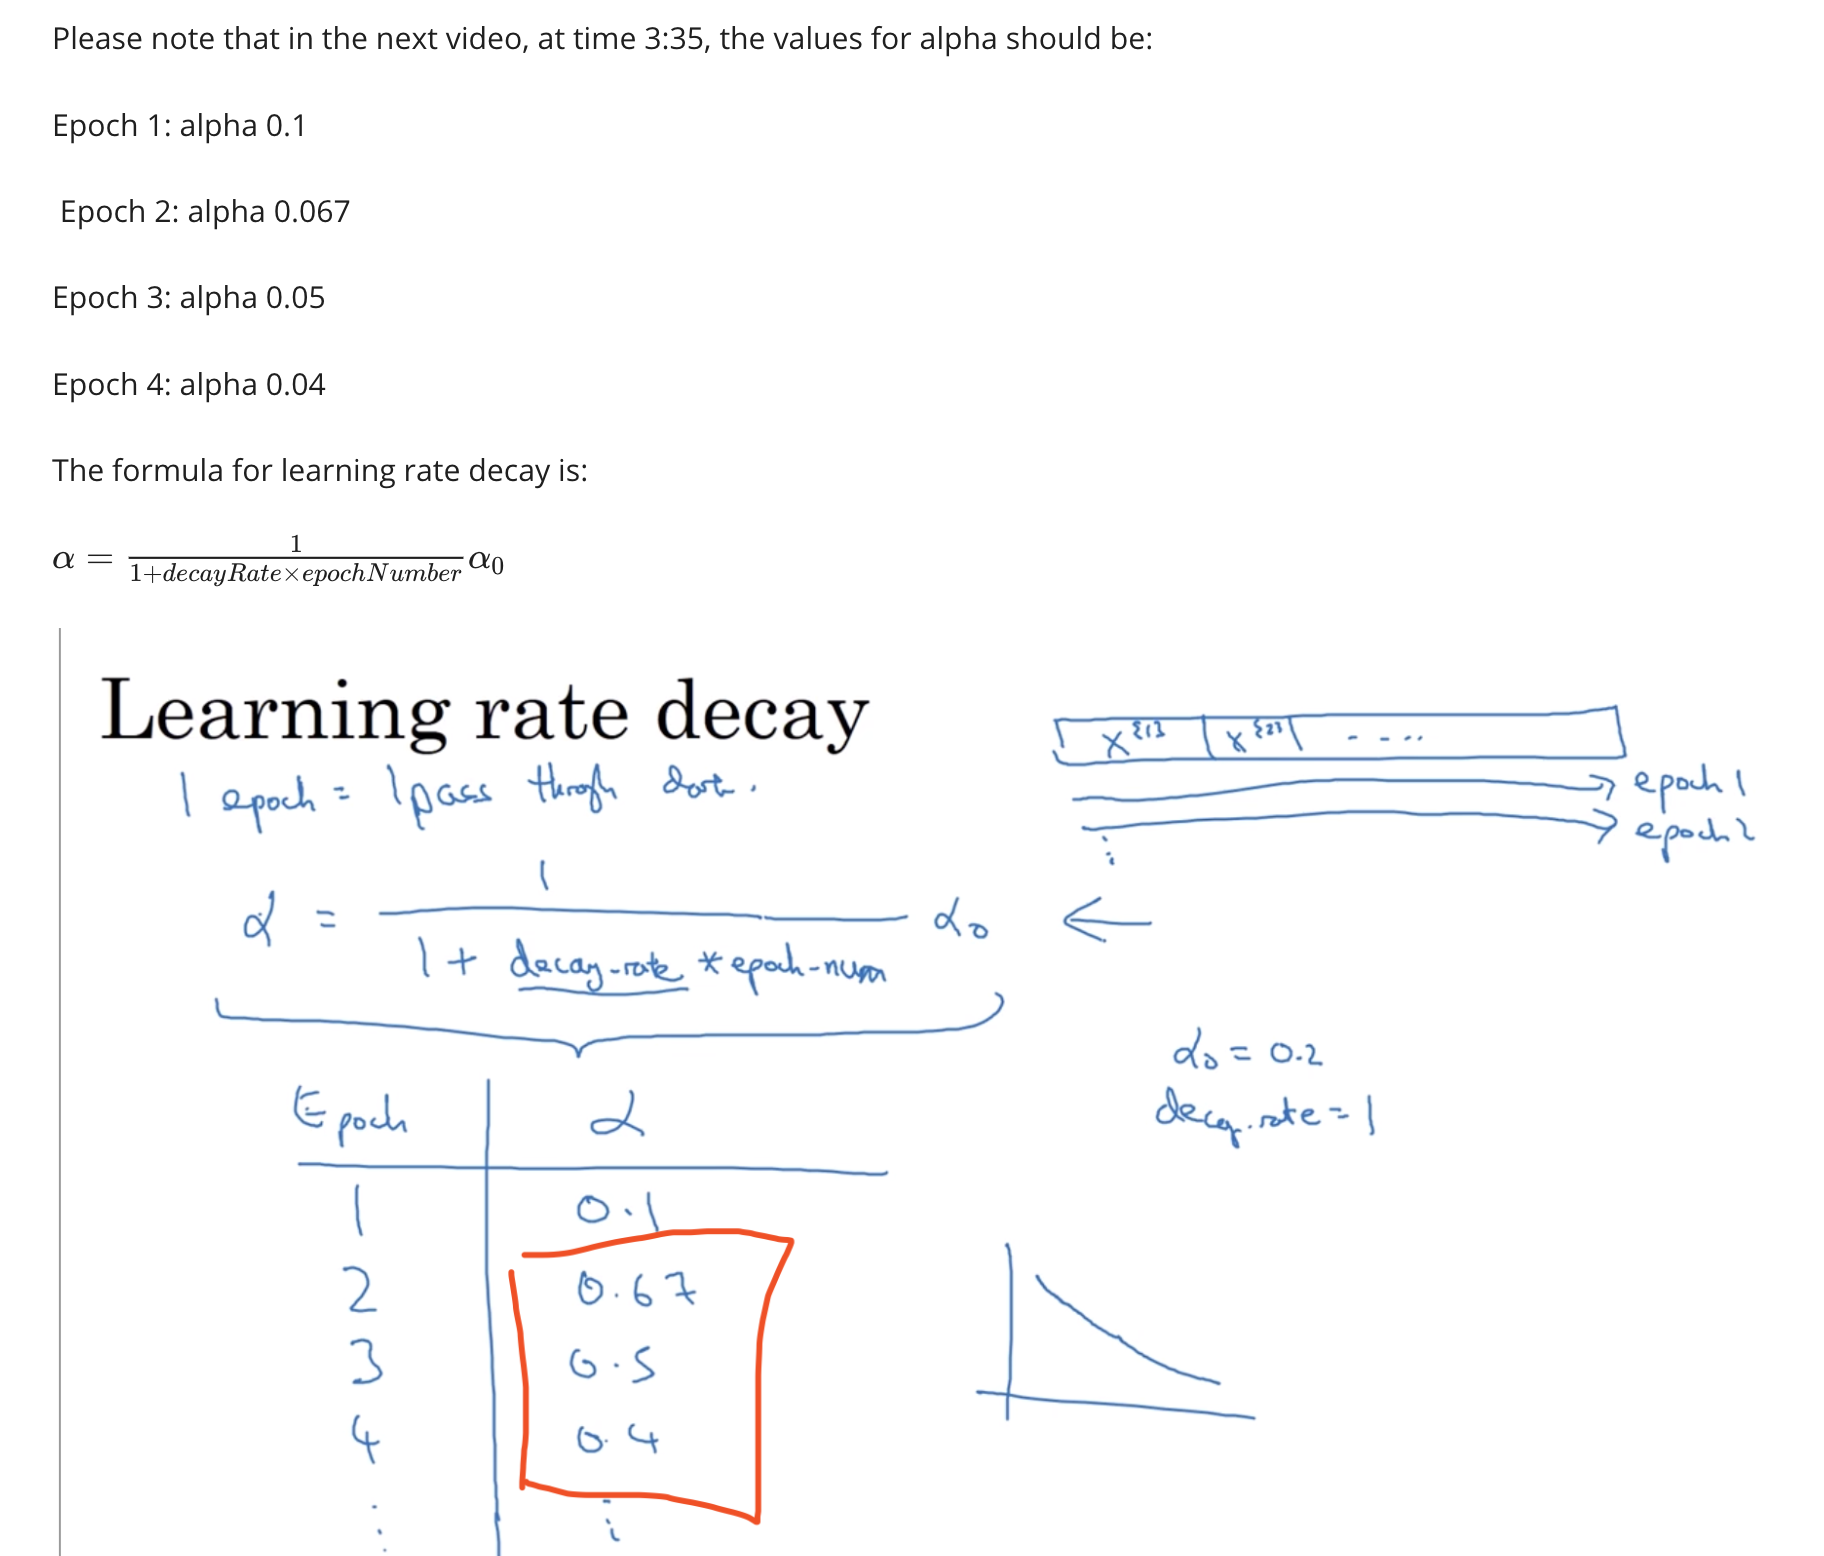 Please note that in the next video, at time 3:35, the values for alpha should be:
Epoch 1: alpha 0.1
Epoch 2: alpha 0.067
Epoch 3: alpha 0.05
Epoch 4: alpha 0.04
The formula for learning rate decay is:
α = 1/(1+decayRate×epochNumber) α₀
Learning rate decay
X{1} X{2} - - ..
1 epoch = 1 pass through data.
epoch 1
epoch 2
⋮
α = 1/(1 + decay-rate * epoch-num) α₀ ←
α₀ = 0.2
decay.rate = 1
Epoch α
1 0.1
2 0.67
3 0.5
4 0.4
⋮ ⋮